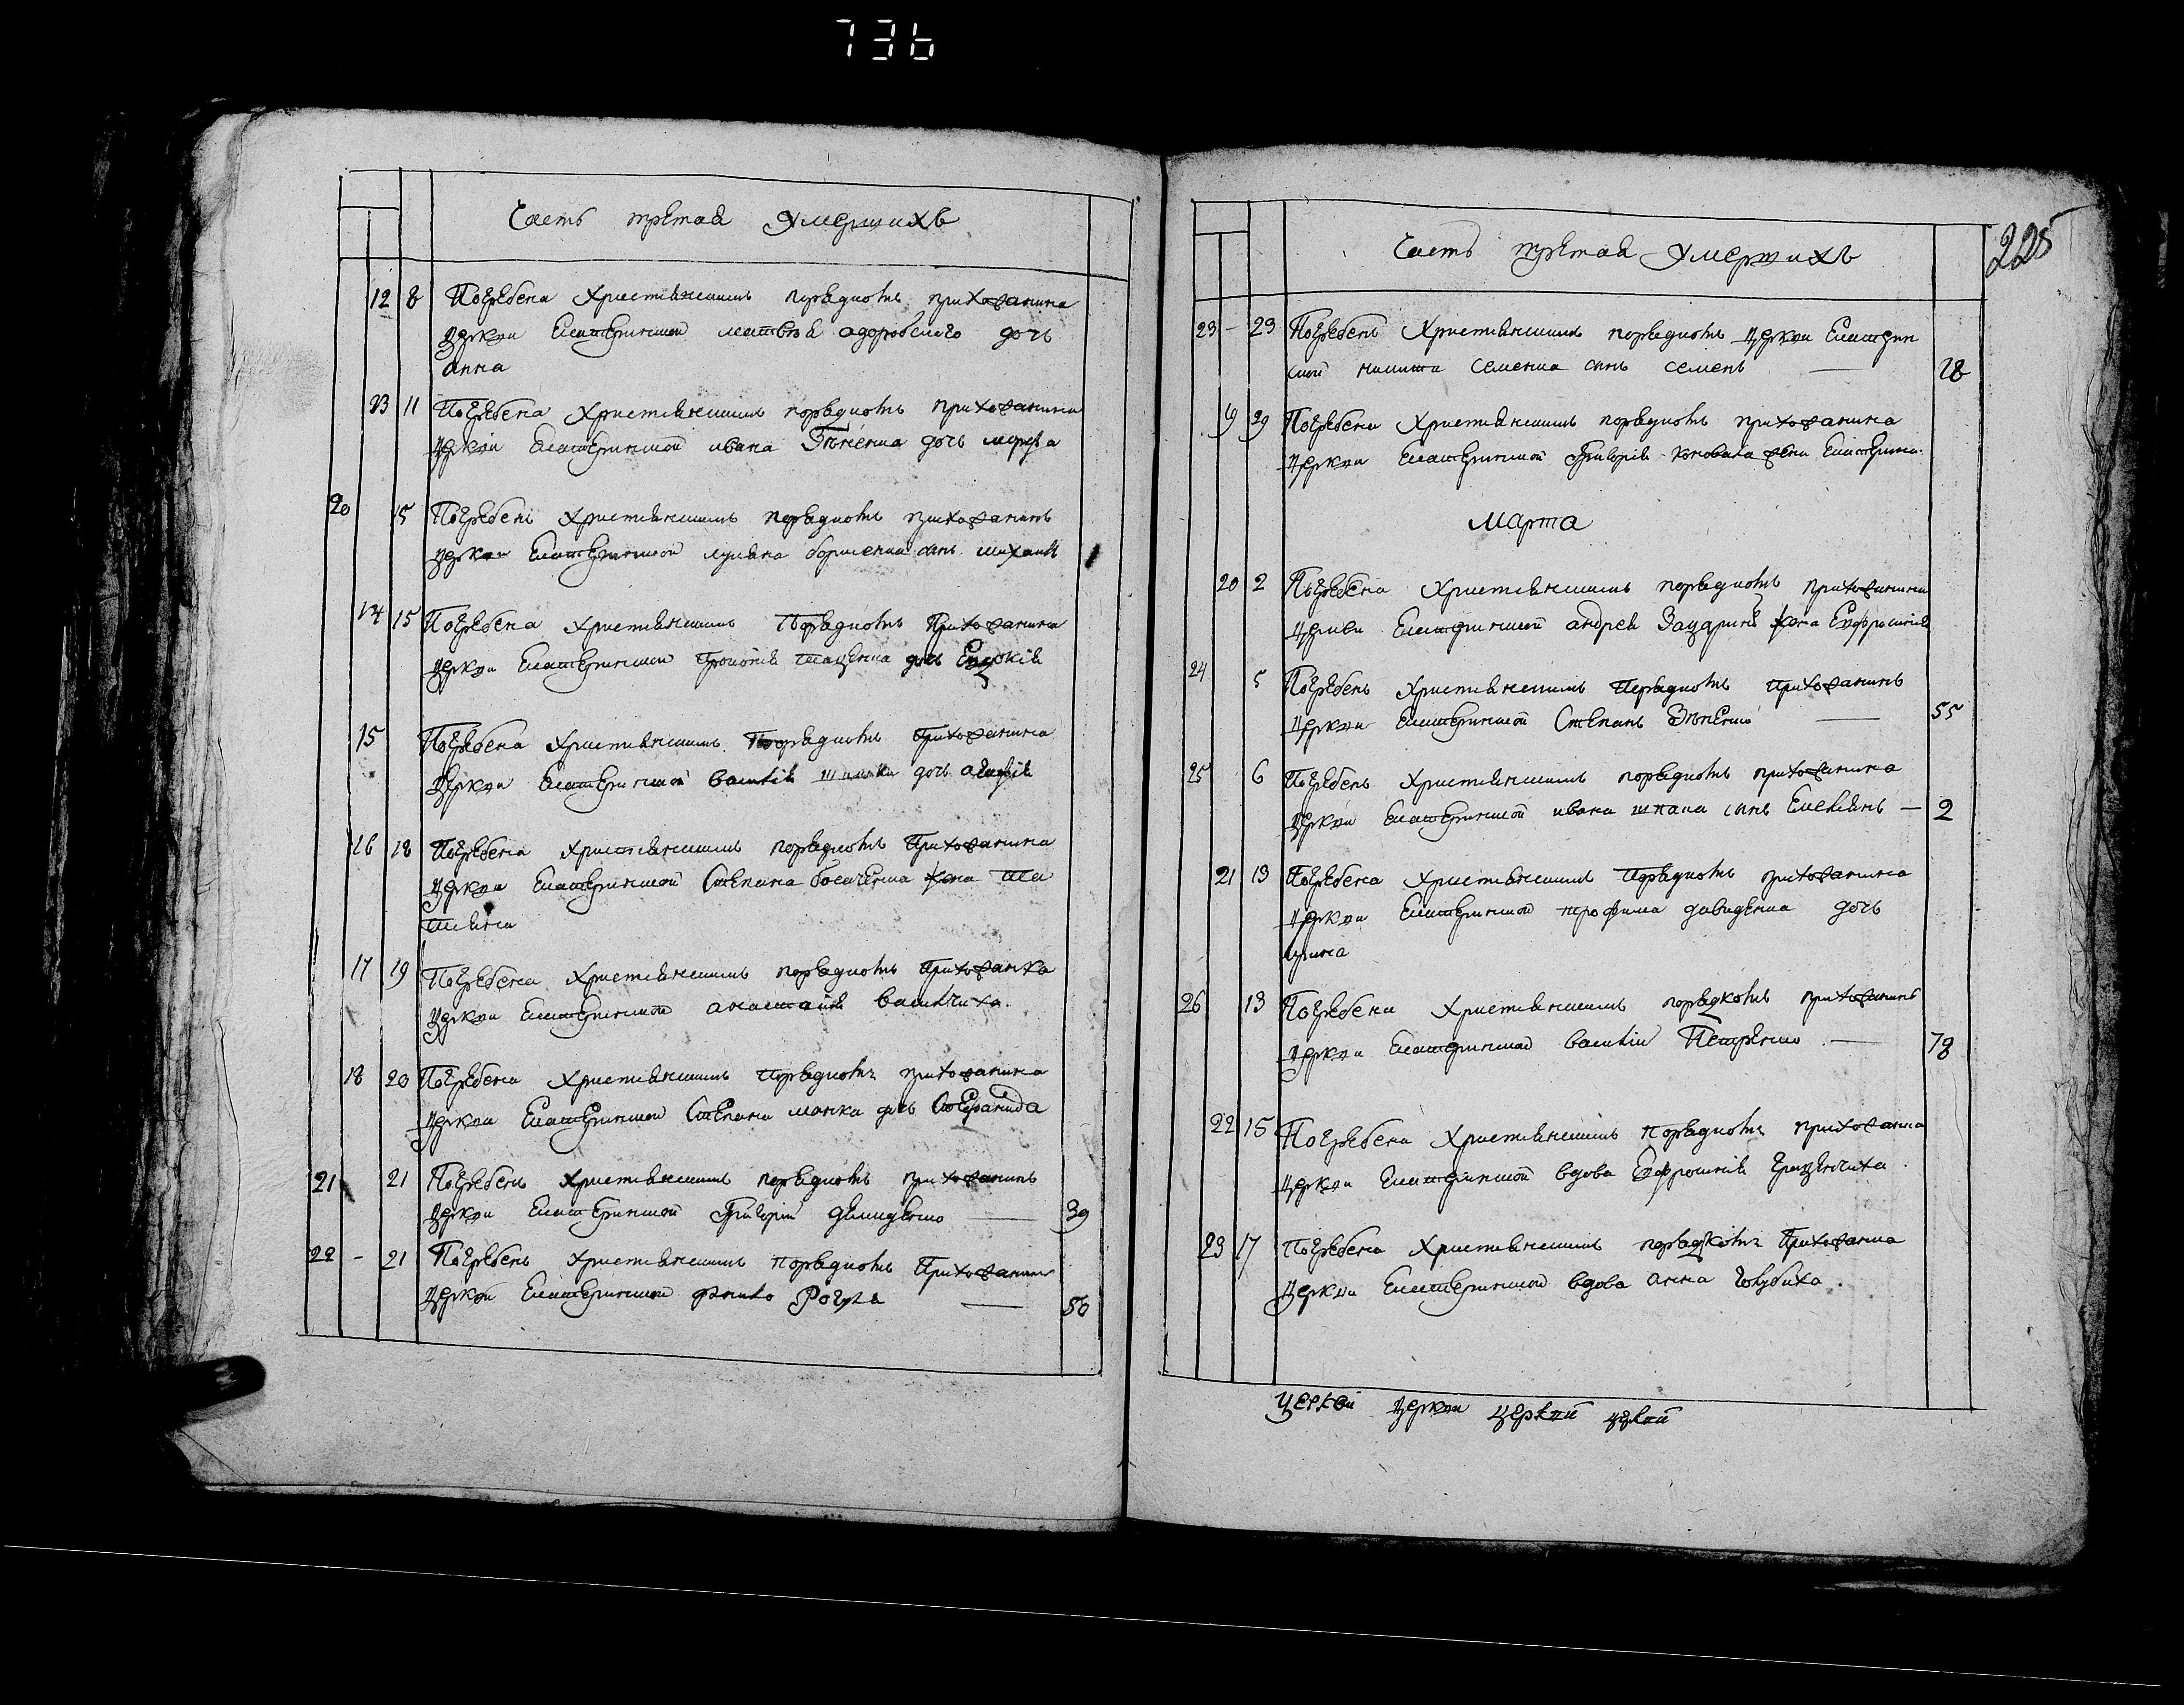 736
Часть третая Умершихъ
12 8 Погребена Христианскимъ порядкомъ прихожанина
церкви Екатеринской матвея здоровскаго дочь
анна
13 11 Погребена Христианскимъ порядкомъ прихожанина
церкви Екатерининской ивана дочь марфа
20 15 Погребенъ Христианскимъ порядкомъ прихожанинъ
церкви Екатерининской сынъ михаилъ
14 15 Погребена Христианскимъ Порядкомъ Прихожанина
церкви Екатерининской дочь Евдокія
15 Погребена Христианскимъ Порядкомъ Прихожанина
Церкви Екатерининской василія шпака дочь агафія
16 18 Погребена христианскимъ порядкомъ Прихожанина
церкви Екатерининской Степана жена Та
тиана
17 19 Погребена Христианскимъ порядкомъ Прихожанка
церкви Екатерининской анастасія василчиха.
18 20 Погребена Христианскимъ порядкомъ прихожанина
церкви Екатерининской Степана дочь
21 21 Погребенъ Христианскимъ порядкомъ прихожанинъ
церкви Екатерининской Григорій демиденко — 39
22 - 21 Погребенъ Христианскимъ порядкомъ Прихожанинъ
церкви Екатерининской Рогуля — 50
225
Часть третая Умершихъ
23 - 23 Погребенъ Христианскимъ порядкомъ церкви Екатерин
ской никита семенка сынъ семенъ — 28
19 29 Погребена Христианскимъ порядкомъ прихожанина
церкви Екатерининской Григорія коновала жена Екатерина.
Марта
20 2 Погребена Христианскимъ порядкомъ прихожанина
церкви Екатерининской андрея жена Евфросинія
24 5 Погребенъ Христианскимъ Порядкомъ прихожанинъ
церкви Екатерининской Степанъ — 55
25 6 Погребенъ Христианскимъ порядкомъ прихожанина
церкви Екатерининской ивана шпака сынъ Емелианъ — 2
21 13 Погребена Христианскимъ Порядкомъ прихожанина
церкви Екатерининской трофима давиденка дочь
ирина
26 13 Погребена Христианскимъ порядкомъ прихожанинъ
церкви Екатерининской василій Петренко. — 78
22 15 Погребена Христианскимъ порядкомъ прихожанка
церкви Екатерининской вдова Евфросинія Гриценчиха.
23 17 Погребена Христианскимъ порядкомъ Прихожанка
Церкви Екатерининской вдова Анна Голубиха.
церкви церкви церкви церкви